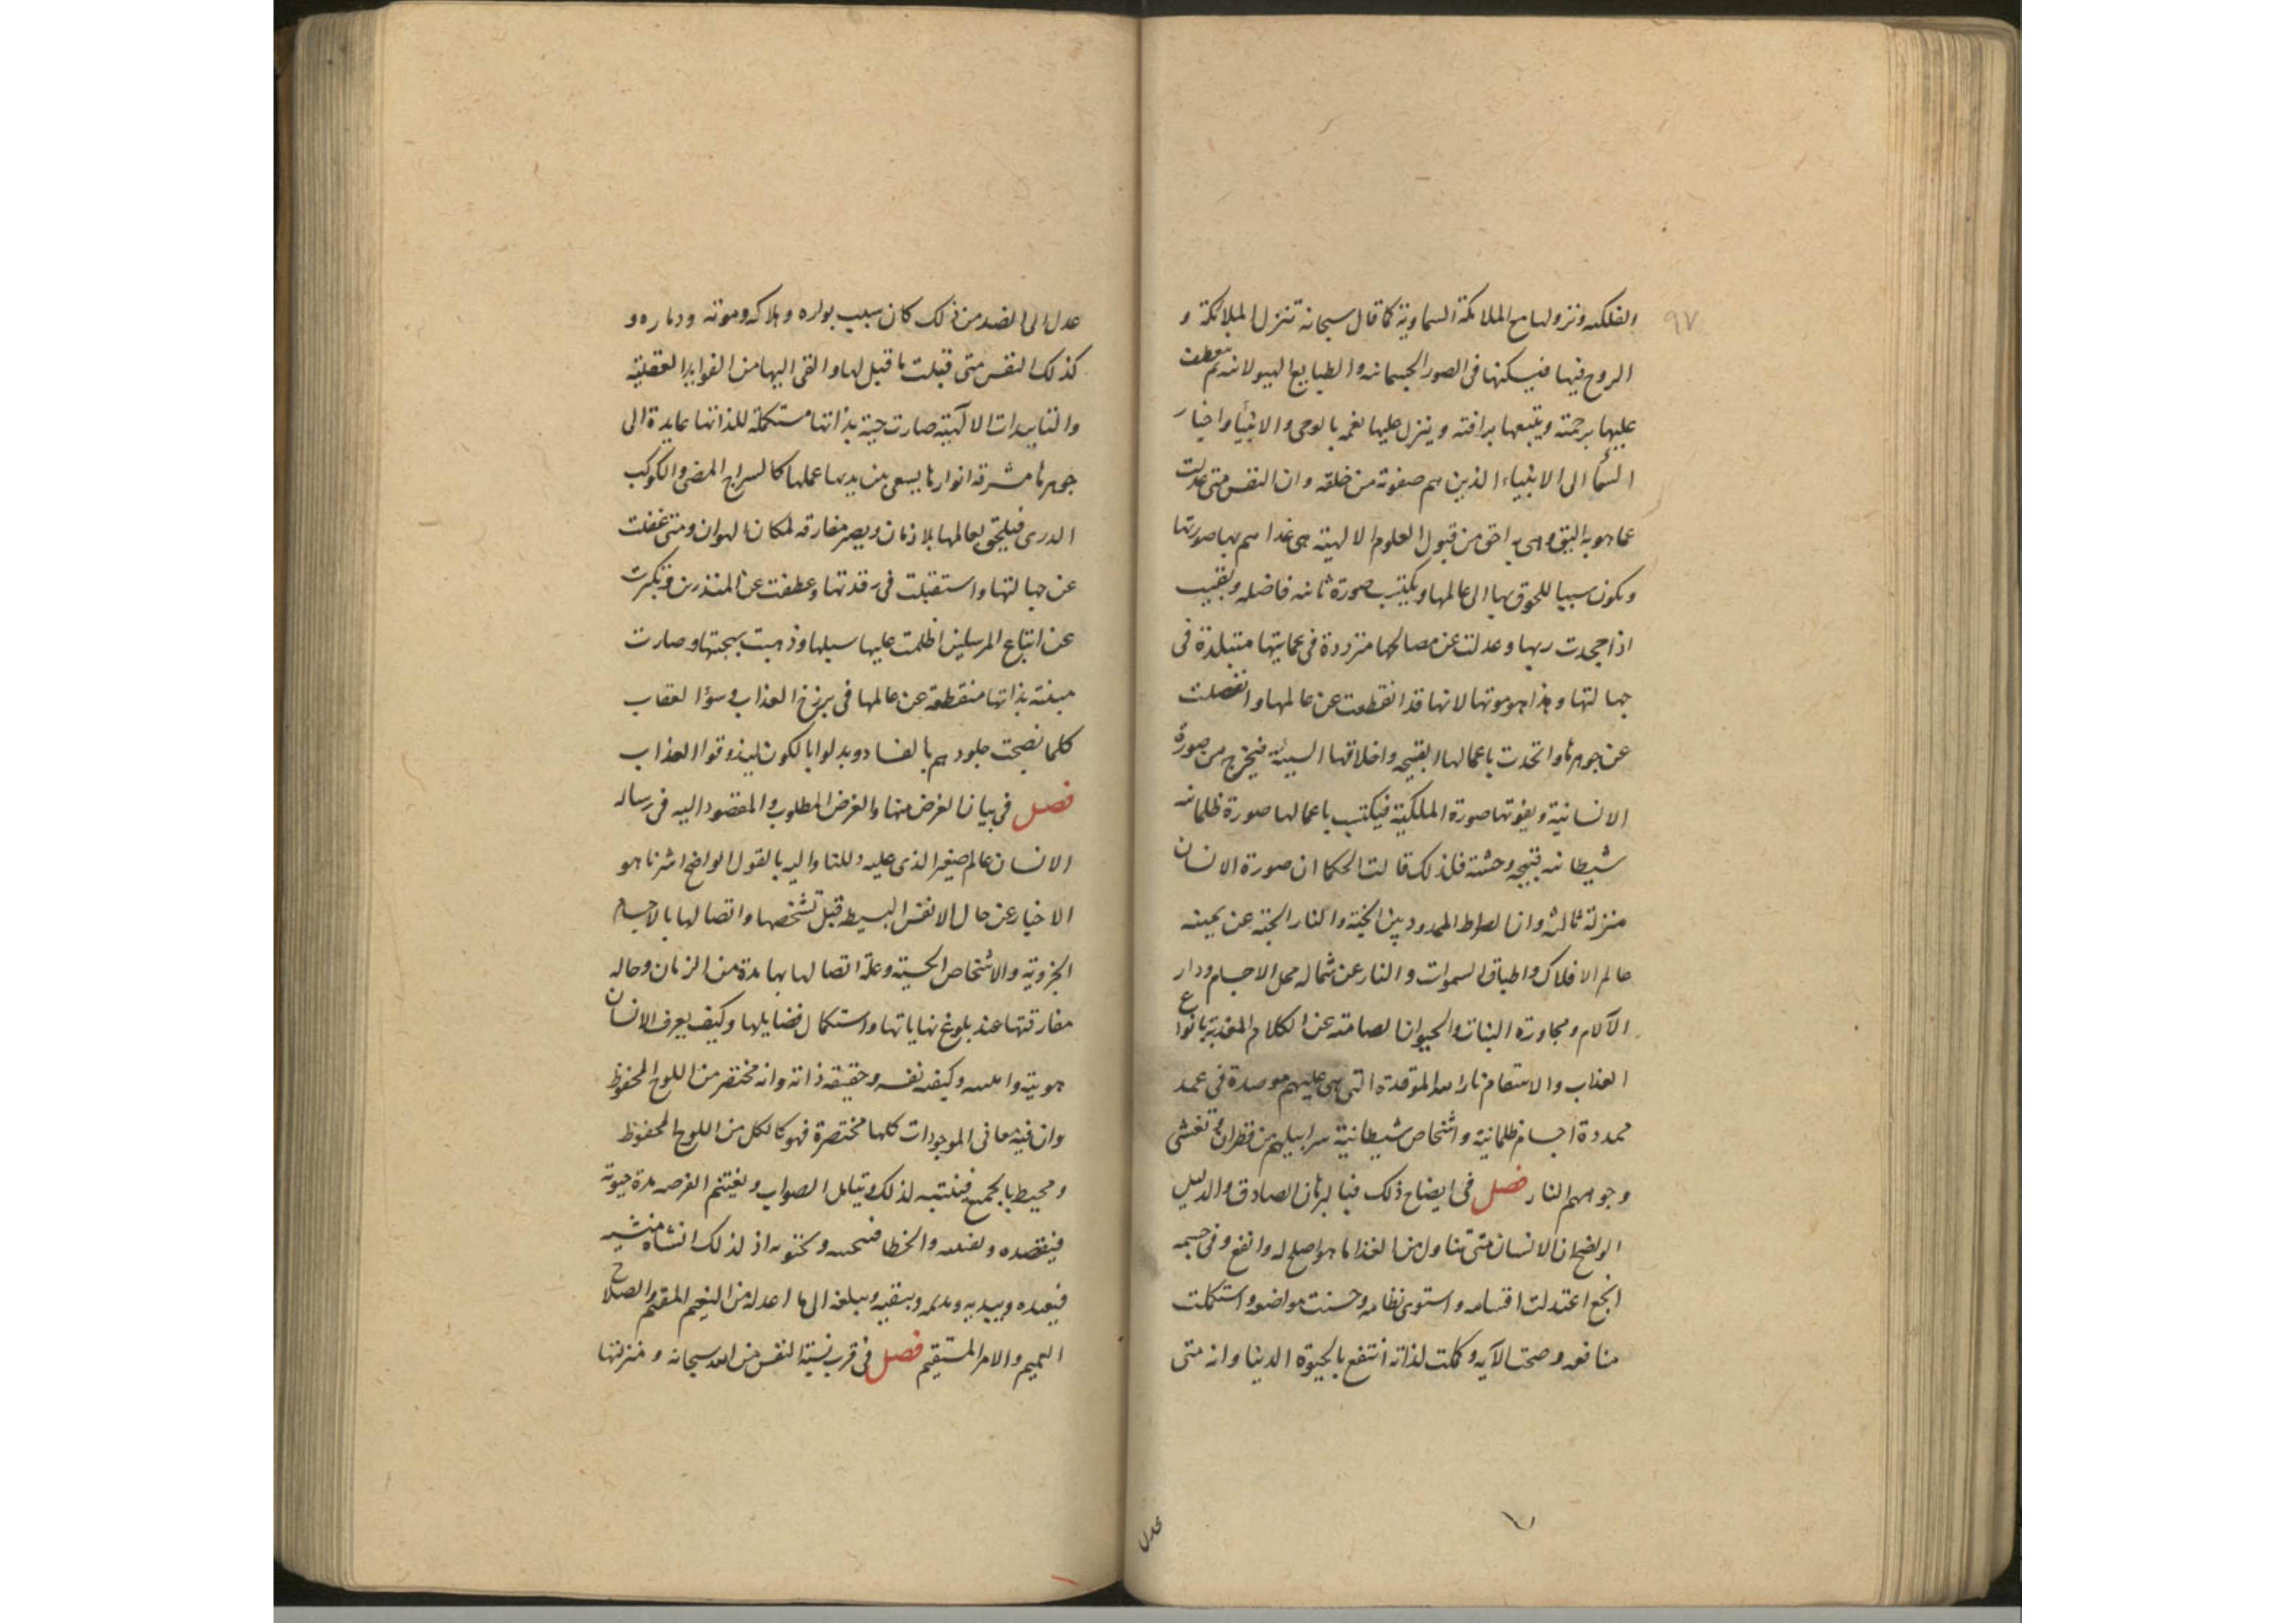 ٩٧
والفلكيه ونزولها مع الملائكة السماوية كما قال سبحانه تنزل الملائكة و
الروح فيها فيسكنها فى الصور الجسمانيه والطبايع الهيولانيه ثم يتعطف
عليها برحمته ويتبعها برافته وينزل عليها نعمه بالوحى والانبيا واخبار
السما الى الانبياء الذين هم صفوته من خلقه وان النفس متى عدلت
عما هو به اليق وهى به احق من قبول العلوم الالهيته هى غدا هم بها صورتها
ويكون سببا للحوق بها الى عالمها ويكتسب صورة ثانيه فاضله وبقيت
اذا جحدت ربها وعدلت عن مصالحها مترددة فى عمايتها متبلدة فى
جهالتها وهذا هو موتها لانها قد انقطعت عن عالمها وانفصلت
عن جوهرها واتحدت باعمالها القبيحه واخلاقها السييه فيخرج من صورة
الانسانية ويفوتها صورة الملكية فيكتسب باعمالها صورة ظلمانيه
شيطانيه قبيحه وحشته فلذلك قالت الحكما ان صورة الانسان
منزلة ثالثه وان الصراط الممدود بين الجنة والنار الجنة عن يمينه
عالم الافلاك واطباق السموات والنار عن شماله محل الاجسام ودار
الآلام ومجاورة النبات والحيوان الصامته عن الكلام المعذبة بانواع
العذاب والاسقام نار الله الموقدة التى هى عليهم موصدة فى عمد
ممددة اجسام ظلمانية واشخاص شيطانية سرابيلهم من قطران وتغشى
وجوههم النار فصل فى ايضاح ذلك فبالبرهان الصادق والدليل
الواضح ان الانسان متى تناول من الغذا ما هو اصلح له وانفع وفى جسمه
انجع اعتدلت اقسامه واستوى نظامه وحسنت مواضعه واستكملت
منافعه وصحت الآيه وكملت لذاته انتفع بالحيوة الدنيا وانه متى
عدل
عدل الى الضد من ذلك كان سبب بواره وهلاكه وموته ودماره و
كذلك النفس متى قبلت ما قبل لها والقى اليها من الفوايد العقلية
والتاييدات الالهيته صارت حية بذاتها مستكملة للذاتها عايدة الى
جوهرها مشرقه انوارها يسعى بين يديها عملها كالسراج المضى والكوكب
الدرى فيلحق بعالمها بلا زمان ويصير مفارقه لمكان الهوان ومتى غفلت
عن جهالتها واستقبلت فى رقدتها وعطفت عن المنذرين وتكبرت
عن اتباع المرسلين اظلمت عليها سبلها وذهبت بهجتها وصارت
ميته بذاتها منقطعة عن عالمها فى برزخ العذاب وسؤ العقاب
كلما نضجت جلودهم بالفساد وبدلوا بالكون ليذوقوا العذاب
فصل فى بيان الغرض منها والغرض المطلوب والمقصود اليه فى رساله
الانسان عالم صغير الذى عليه دللنا واليه بالقول الواضح اشرنا هو
الاخبار عن حال الانفس البسيطه قبل تشخصها واتصالها بالاجسام
الجزويه والاشخاص الحسية وعلة اتصالها بها مدة من الزمان وحاله
مفارقتها عند بلوغ نهاياتها واستكمال فضايلها وكيف يعرف الانسان
هويته وكيفيه نفسه وحقيقه ذاته وانه مختصر من اللوح المحفوظ
وان فيه ما فى الموجودات كلها مختصرة فهو كالكل من اللوح المحفوظ
ومحيط بالجميع فينتبه لذلك ويتامل الصواب ويغتنم الفرصه مدة حيوته
فيقصده ويفعله والخطا اذ لذلك انشاه منشيه
فيعيده ويبديه ويبقيه ويبلغه الى ما اعد له من النعيم المقيم والصلاح
العميم والامر المستقيم فصل فى قرب نسبة النفس من الله سبحانه ومنزلتها